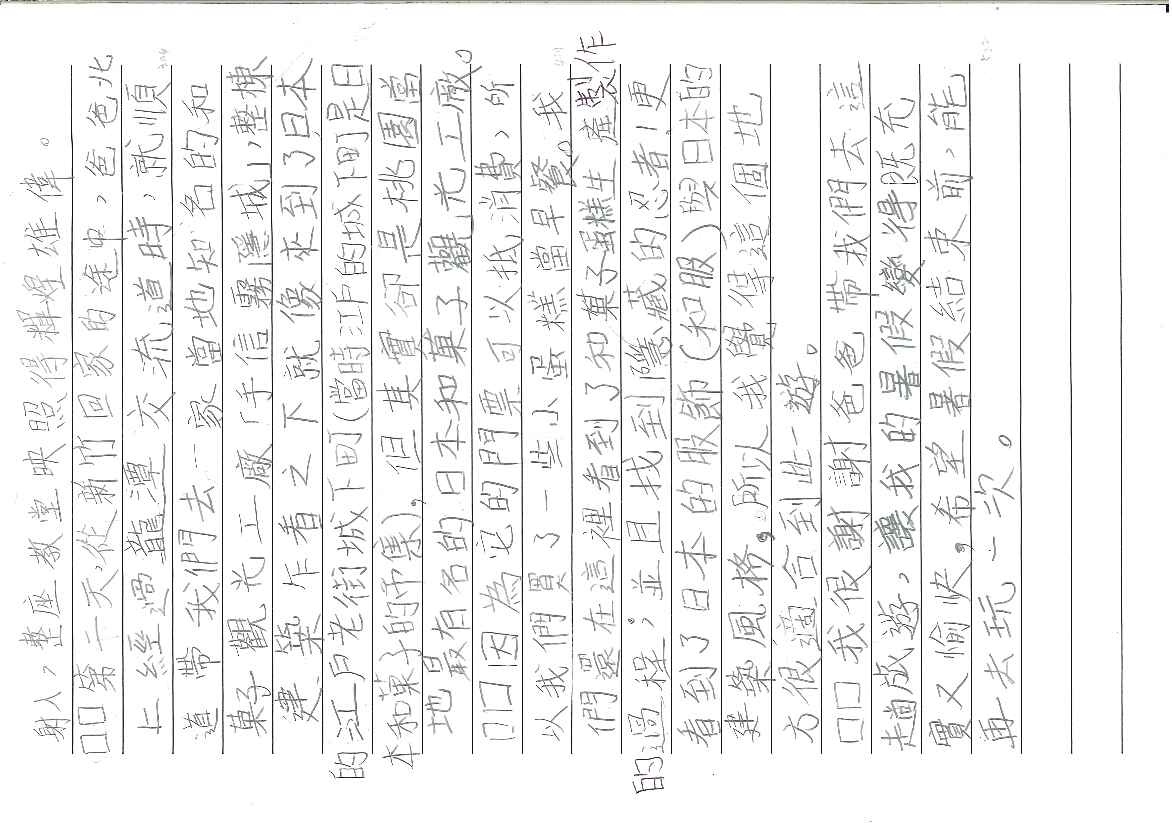 射入，整座教堂映照得輝煌雄偉。
□□第二天，從新竹回家的途中，爸爸北
上經過龍潭交流道時，就順
道帶我們去一家當地知名的和
菓子觀光工廠「手信霧隱城」，整棟
建築乍看之下就像來到了日本
的江戶老街城下町（當時江戶的城下町是日
本和菓子的市集），但其實卻是桃園當
地最有名的日本和菓子觀光工廠。
□□因為它的門票可以抵消費，所
以我們買了一些小蛋糕當早餐。我
們還在這裡看到了和菓子蛋糕生產製作
的過程；並且找到隱藏的忍者！更
看到了日本的服飾（和服）與日本的
建築風格，所以我覺得這個地
方很適合到此一遊。
□□我很謝謝爸爸帶我們去這
趟旅遊，讓我的暑假變得既充
實又愉快，希望暑假結束前，能
再去玩一次。